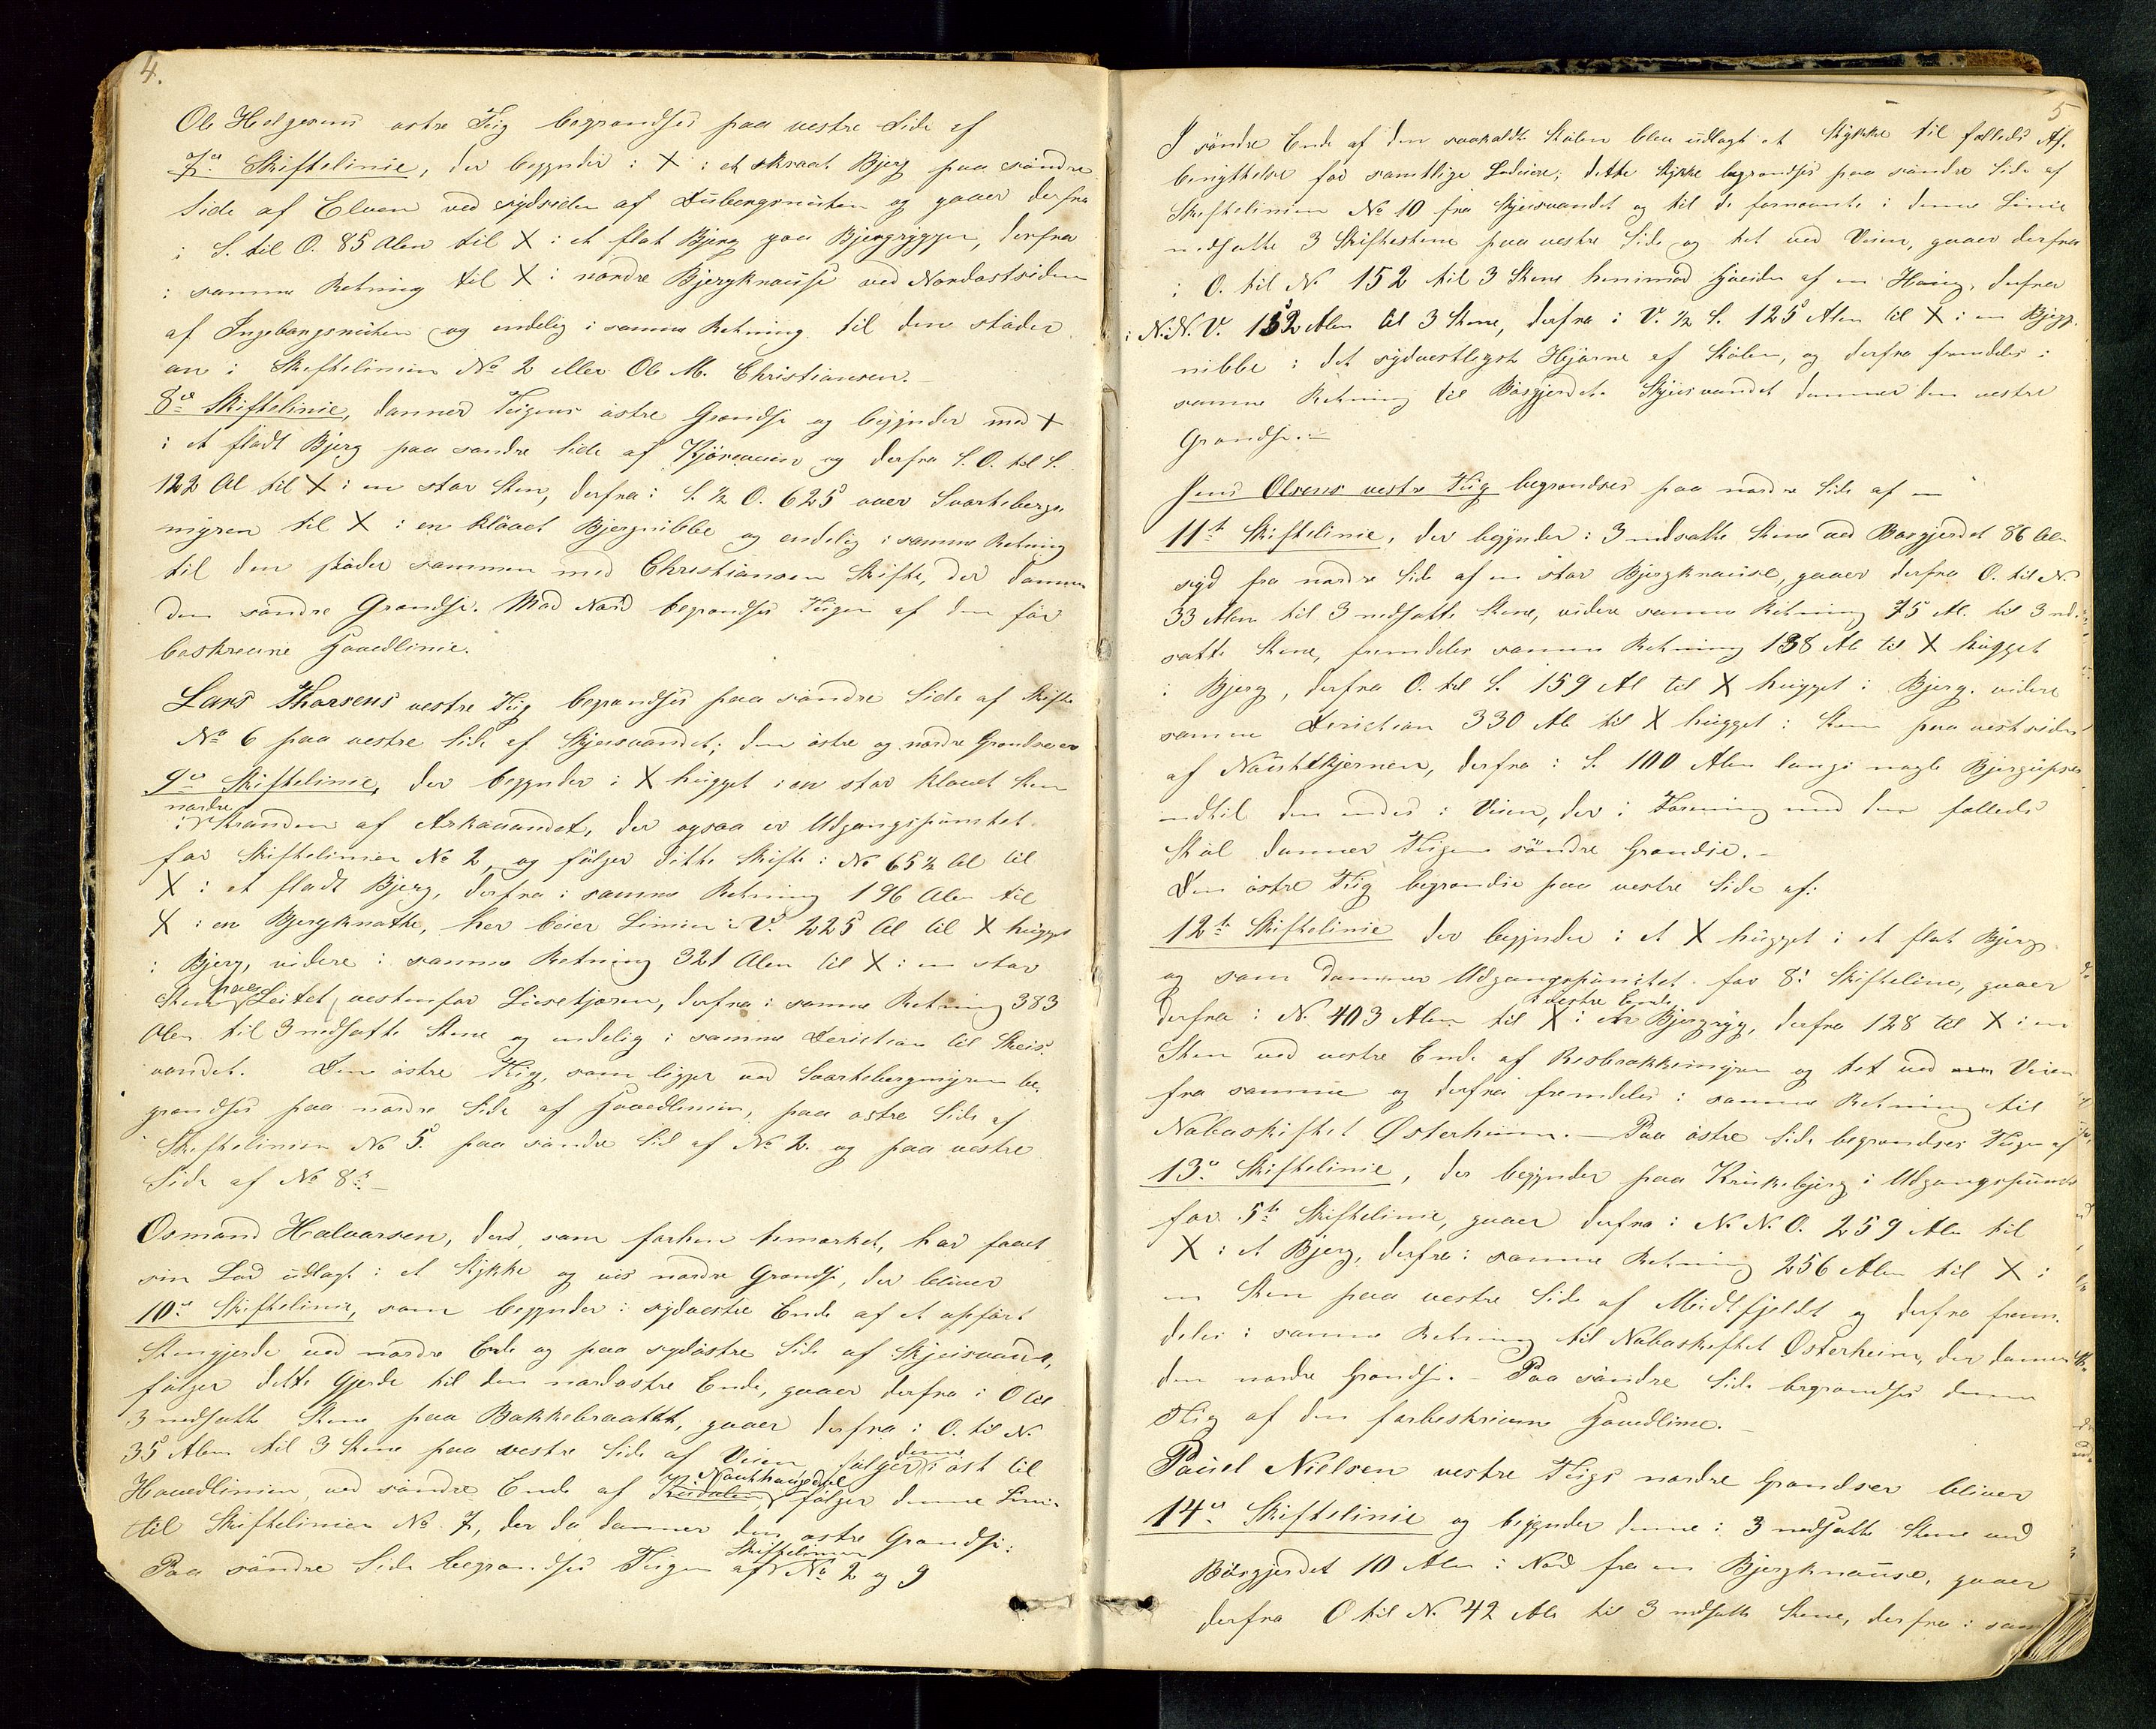 4.
Ole Helgesens østre Teig begrændses paa vestre Side af
7de Skiftelinie, der begynder i X i et skraat Bjerg paa søndre
Side af Elven ved sydsiden af Dubergsnuten og gaaer derfra
i S. til O. 85 Alen til X i et flat Bjerg paa Bjergryggen, derfra
i samme Retning til X i nordre Bjergknause ved Nordostsiden
af Ingebergsnuten og endelig i samme Retning til den støder
an i Skiftelinien No 2 eller Ole M. Christiansen.
8de Skiftelinie, danner Teigens østre Grændse og begynder med X
i et fladt Bjerg paa søndre Side af Kjøreveien og derfra S. O. til S.
122 Al til X i en stor Sten, derfra i S. ½ O. 625 over Svartebergs
myren til X i en kløvet Bjergnibbe og endelig i samme Retning
til den støder sammen med Christiansen Skifte, der danner
den søndre Grændse. Mod Nord begrændses Teigen af den før
beskrevne Hovedlinie.
Lars Thorsens vestre Teig begrændses paa søndre Side af Skifte
No 6 paa vestre Side af Skjeisvandet; den østre og nordre Grændse er
9de Skiftelinie, der begynder i X hugget i en stor kløvet Sten
nordre
i Stranden af Arkavandet, der ogsaa er Udgangspunktet
for Skiftelinien No 2, og følger dette Skifte i No 65½ Al til
X i et fladt Bjerg, derfra i samme Retning 196 Alen til
X i en Bjergknatte, her bøier Linien i V. 225 Al til X hugget
i Bjerg, videre i samme Retning 321 Alen til X i en stor
Sten paa Leitet vestenfor Liosetjøren, derfra i samme Retning 383
Alen til 3 nedsatte Stene og endelig i samme Deriction til Skeis-
vandet. Den østre Teig, som ligger ved Svartebergmyren be-
grændses paa nordre Side af Hovedlinien, paa østre Side af
Skiftelinien No 5. paa søndre Sid af No 2. og paa vestre
Side af No 8de
Osmand Halvorsen, der, som forhen bemærket, har faaet
sin Lod udlagt i et Stykke og vis nordre Grændse, der bliver
10de Skiftelinie, som begynder i sydvestre Ende af et opført
Stengjerde ved nordre Ende og paa sydøstre Side af Skjeisvand,
følger dette Gjerde til den nordostre Ende, gaaer derfra i O til
3 nedsatte Stene paa Bakkebraatet, gaaer derfra i O. til N.
35 Alen til 3 Stene paa vestre Side af Veien, følger denne i øst til
Hovedlinien, ved søndre Ende af Nauthaugedal, følger denne Linie
til Skiftelinien No 7, der da danner den østre Grændse.
Paa søndre Side begrændses Teigen af Skiftelinien No 2 og 9
5
I søndre Ende af den saakaldte Stølen blev udlagt et Stykke til fælleds Af-
benyttelse for samtlige Lodeiere; dette Stykke begrændses paa søndre Side af
Skiftelinien No 10 fra Skjeisvandet og til de fornævnte i denne Linie
nedsatte 3 Skiftestene paa vestre Side og tet ved Veien, gaaer derfra
i O. til N 152 til 3 Stene henimod Høiden af en Haug, derfra
i N.N.V. 152 Alen til 3 Stene, derfra i V. ½ S. 125 Alen til X i en Bjerg-
nibbe i det sydvestligste Hjørne af Stølen, og derfra fremdeles i
samme Retning til Bøsgjerdet. Skjeisvandet danner den vestre
Grændse.
Jens Olsens vestre Teig begrændses paa nordre Side af en
11te Skiftelinie, der begynder i 3 nedsatte Stene ved Bøsgjerdet 86 Alen
syd fra nordre Side af en stor Bjergknause, gaaer derfra O. til N.
33 Alen til 3 nedsatte Stene, videre samme Retning 75 Al. til 3 ned-
satte Stene, fremdeles samme Retning 138 Al til X hugget
i Bjerg, derfra O. til S. 159 Al til X hugget i Bjerg. videre
samme Deriction 330 Al til X hugget i Sten paa vestsiden
af Naustetkjernen, derfra i S. 100 Alen langs nogle Bjergupser
indtil den ender i Veien, der i Forening med den fælleds
Støl danner Teigens søndre Grændse.
Den østre Teig begrændse paa vestre Side af:
12te Skiftelinie der begynder i et X hugget i et flat Bjerg
og som danner Udgangspunctet for 8de Skiftelinie, gaaer
derfra i N. 403 Alen til X i vestre Ende Bjergryg, derfra 128 til X i en
Sten ved vestre Ende af Risbrakkemyren og tet ved Veien
fra samme og derfra fremdeles i samme Retning til
Naboskiftet Østerheim. Paa østre Side begrændses Teigen af
13de Skiftelinie, der begynder paa Krukebjerg i Udgangspunctet
for 5te Skiftelinie, gaaer derfra i N. N. O. 259 Alen til
X i et Bjerg, derfra i samme Retning 256 Alen til X i
en Sten paa vestre Side af Meidtfjeldt og derfra frem-
deles i samme Retning til Naboskiftet Østerheim, der danner
den nordre Grændse. Paa søndre Side begrændses denne
Teig af den forbeskrivne Hovedlinie.
Pauel Nielsen vestre Teigs nordre Grændser bliver
14de Skiftelinie og begynder denne i 3 nedsatte Stene ved
Bøsgjerdet 10 Alen i Nord fra en Bjergknause, gaaer
derfra O til N. 42 Alen til 3 nedsatte Stene, derfra i sam